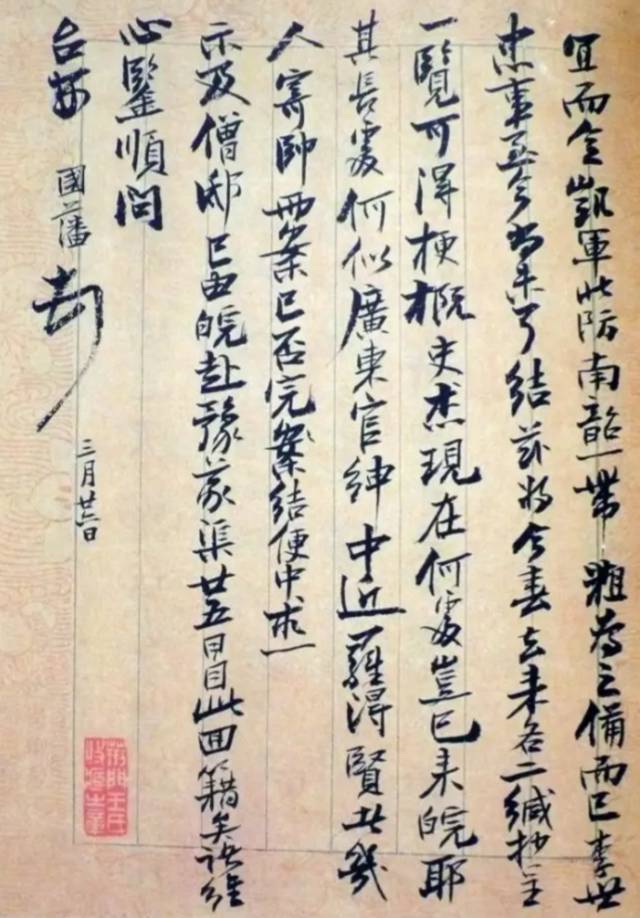 宜而令凱軍出防南韶一帶粗為之備而已李世
忠事至今尚未了結茲將今春去來各二緘抄呈
一覽可得梗概史杰現在何處豈已來皖耶
其長處何似廣東官紳中近羅得賢者幾
人寄帥兩案已否完案結便中求
示及僧邸已由皖赴豫義渠廿五日自此回籍矣諸維
心鑒順問
台安 國藩 頓
三月廿六日